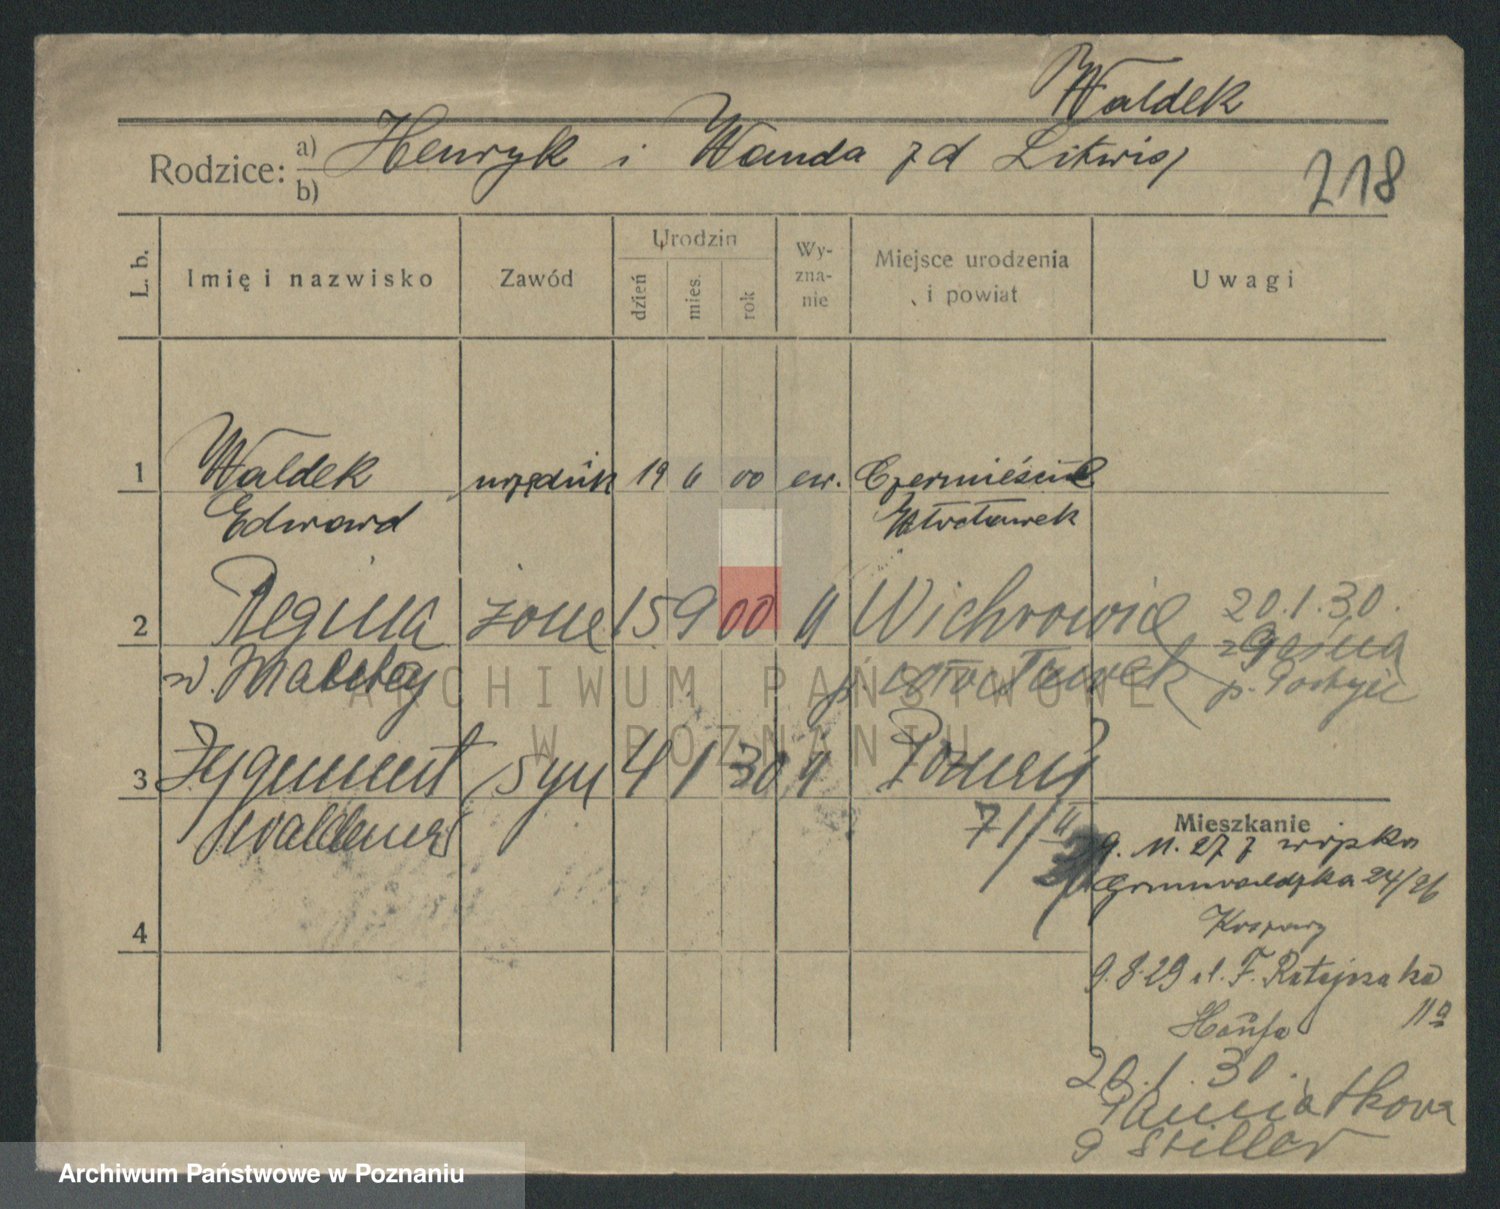 Waldek
Rodzice: a) Henryk i Wanda z d Litwis
b)
218
L. b.
Imię i nazwisko
Zawód
Urodzin
dzień
mies.
rok
Wy-
zna-
nie
Miejsce urodzenia
i powiat
Uwagi
1 Waldek urzędnik 19 6 00 ew.
Edward Włocławek
2 Regina żona 15 9 00 " Wichrowice 20.1.30.
p. Włocławek
3 Zygmunt syn 4 1 30 " Poznań
Waldemar
71/II
4
Mieszkanie
9. 11. 27 z wojska
Grunwaldzka 24/26
9.8.29 ul. F. Ratajczaka
11a
20.1.30.
Pamiątkowa
9 Stiller
ARCHIWUM PAŃSTWOWE
W POZNANIU
Archiwum Państwowe w Poznaniu